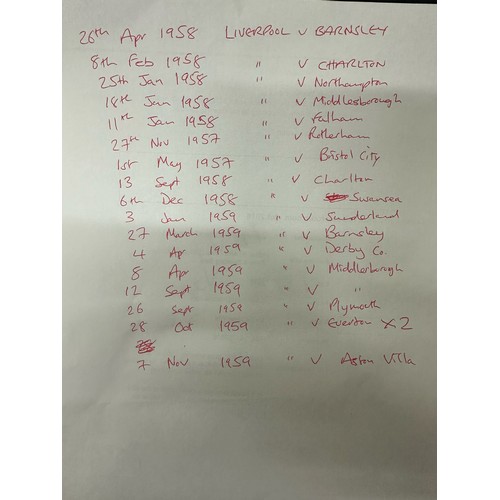 26th Apr 1958 LIVERPOOL v BARNSLEY
8th Feb 1958 " v CHARLTON
25th Jan 1958 " v Northampton
18th Jan 1958 " v Middlesborough
11th Jan 1958 " v Fulham
27th Nov 1957 " v Rotherham
1st May 1957 " v Bristol City
13 Sept 1958 " v Charlton
6th Dec 1958 " v Swansea
3 Jan 1959 " v Sunderland
27 March 1959 " v Barnsley
4 Apr 1959 " v Derby Co.
8 Apr 1959 " v Middlerborough
12 Sept 1959 " v "
26 Sept 1959 " v Plymouth
28 Oct 1959 " v Everton X2
7 Nov 1959 " v Aston Villa